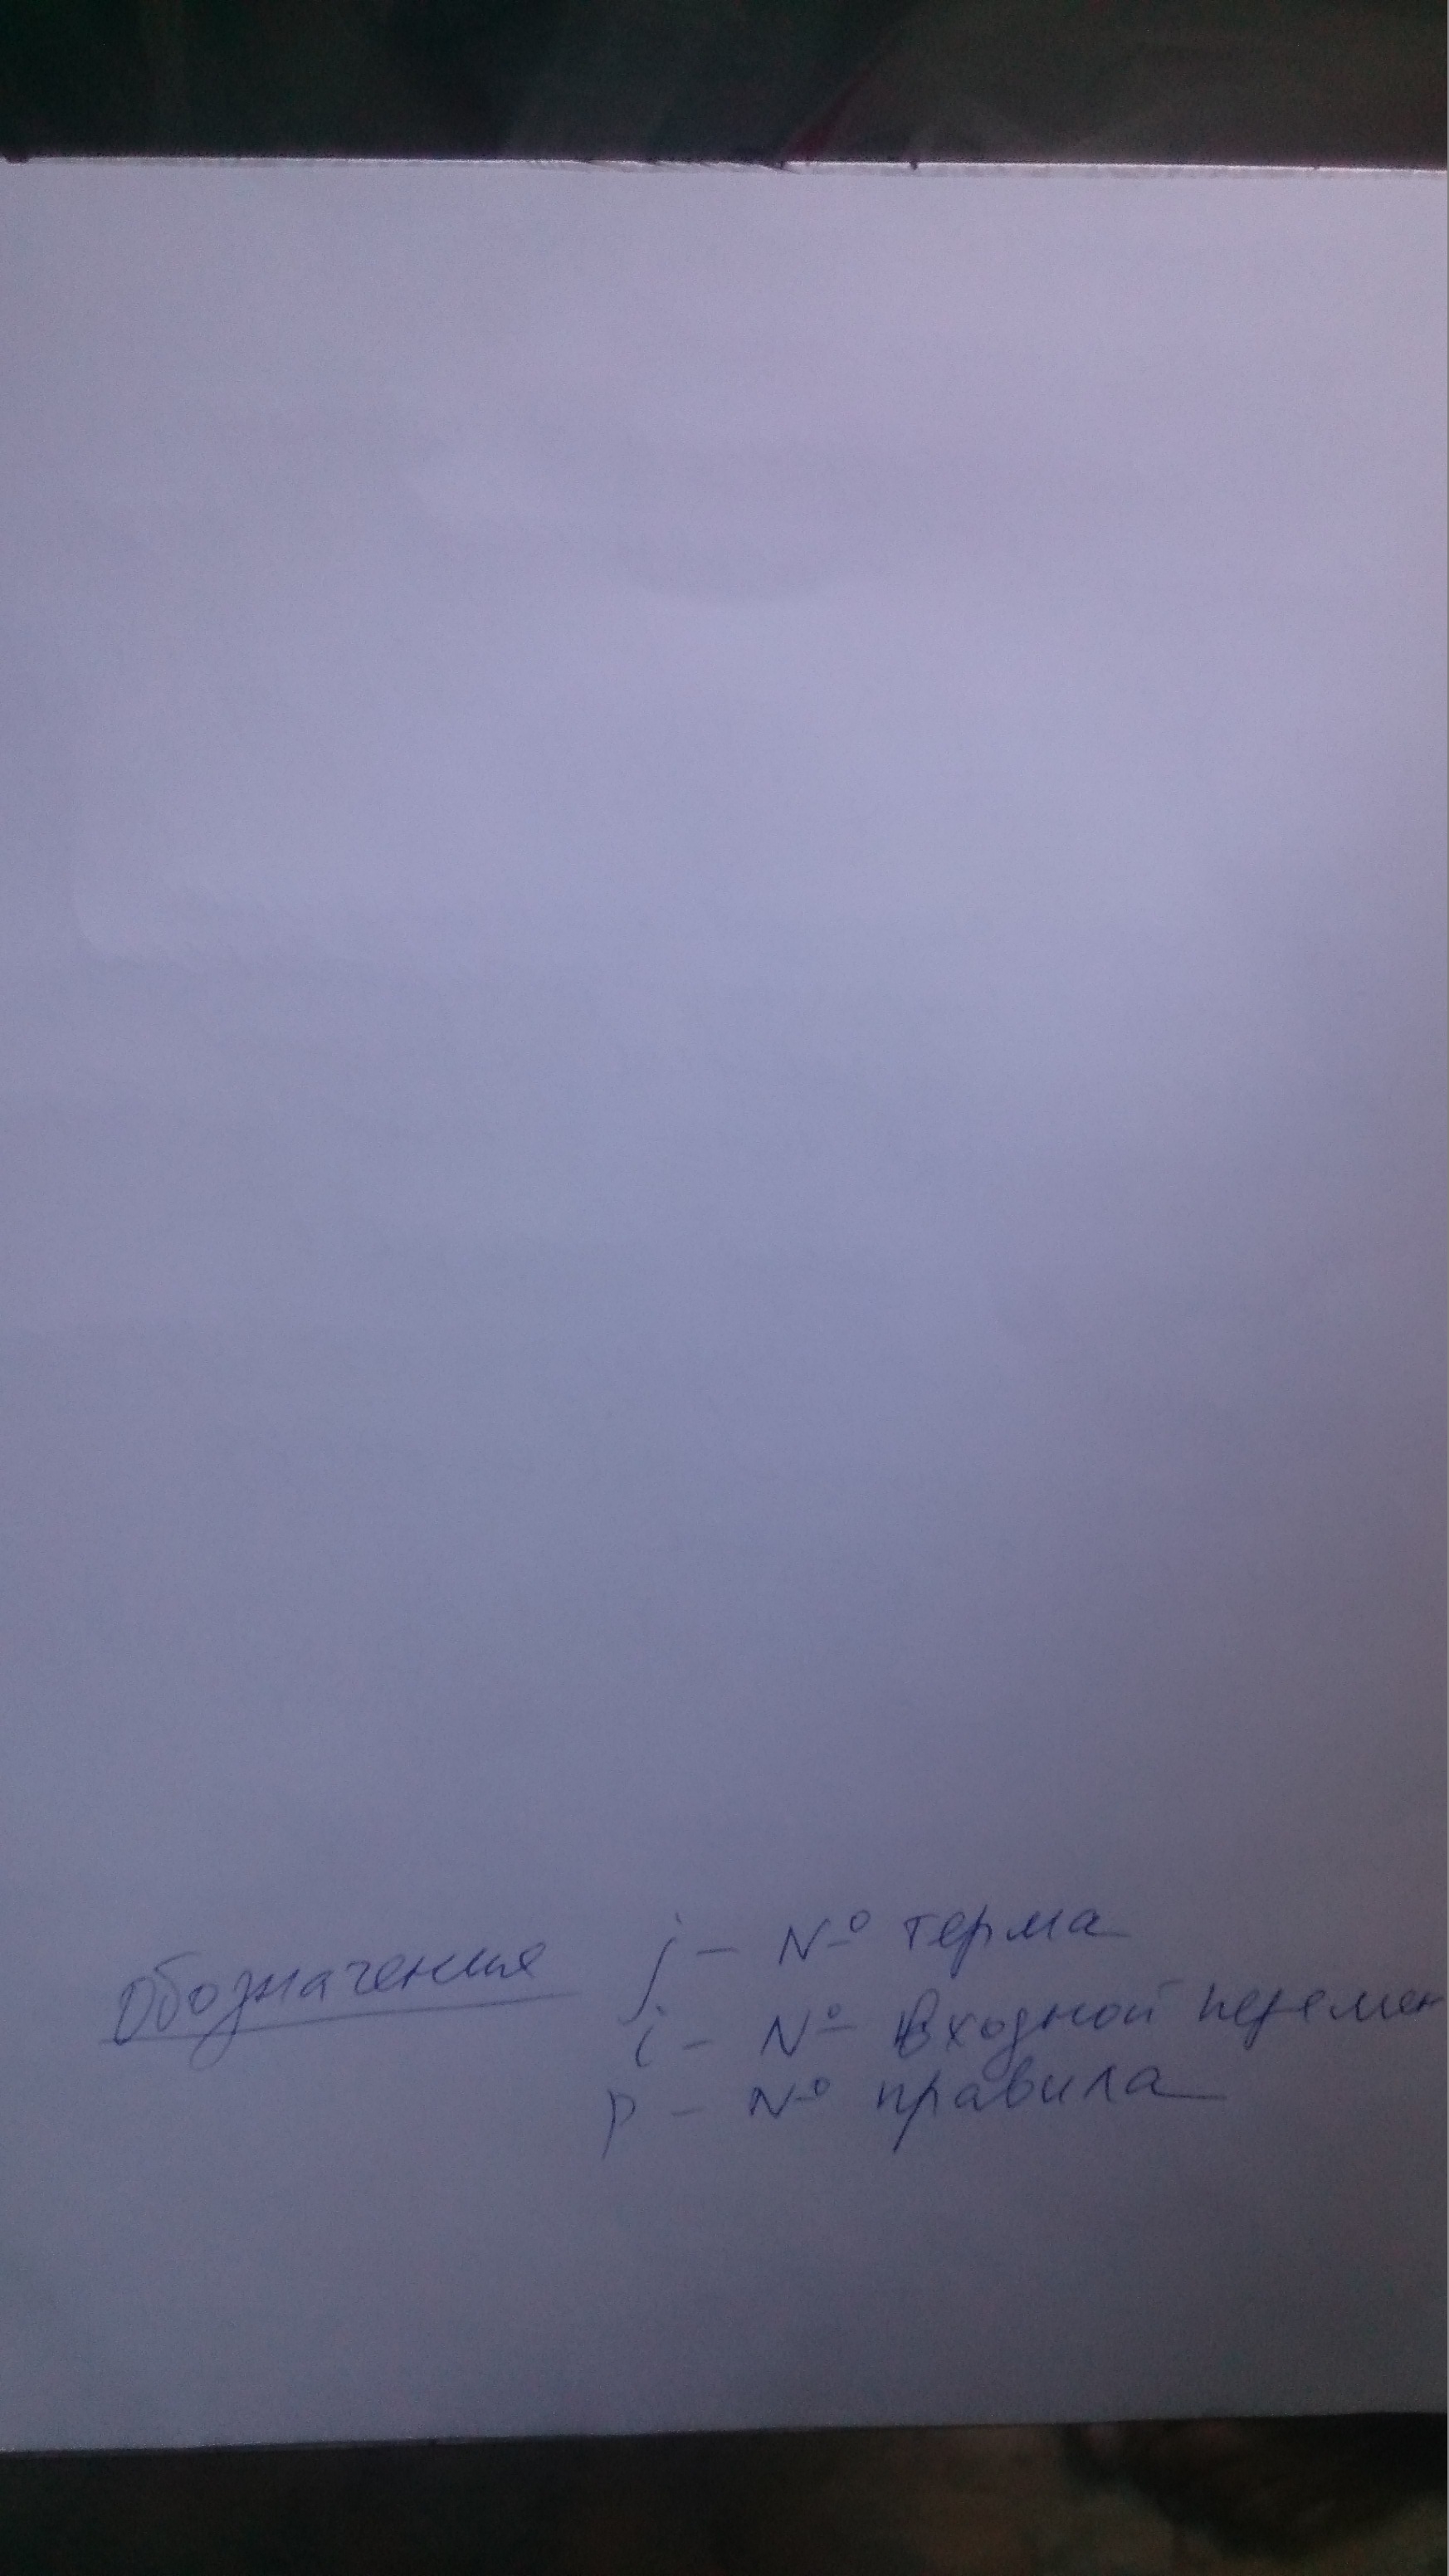 Обозначения j – № терма
i – № входной перемен
p – № правила